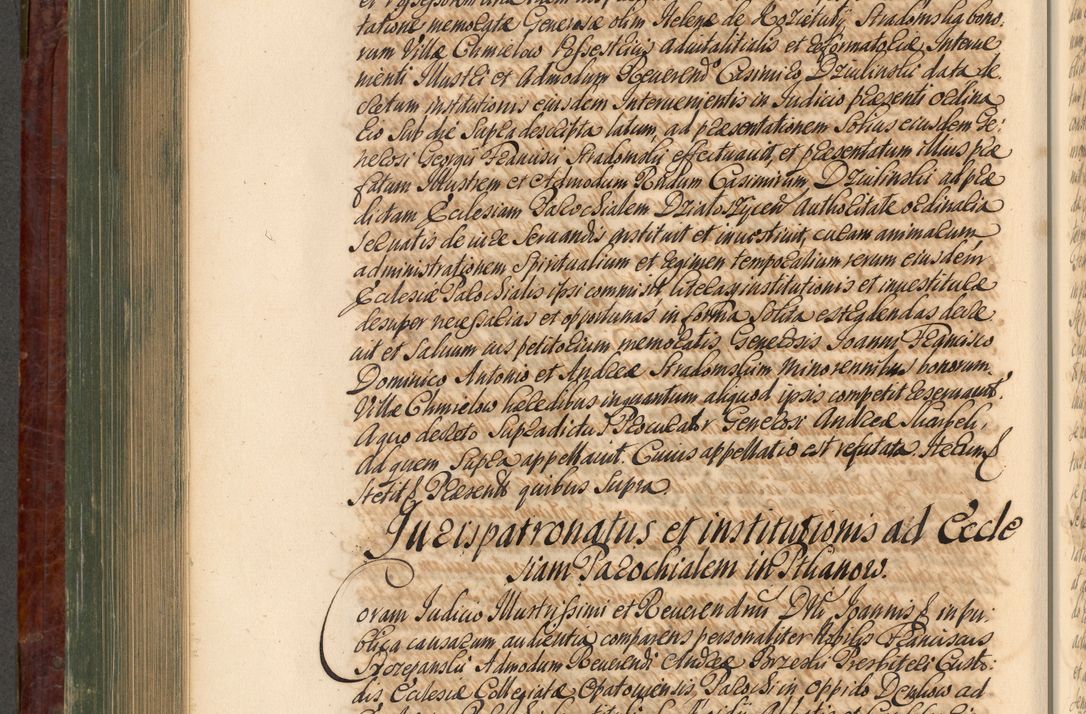 tatione memoratæ Generosæ olim Helenæ de Kozietuły Stradomska bono,
rum Villæ Chmielow Possestricis aduitalitialis et reformatoriæ, Interue
nienti Illustri et Admodum Reuerendo Casimiro Dziulinski data de
cretum institutionis eiusdem Interuenientis in Judicio præsenti ordina
rio sub die supra descripta latum, ad præsentationem solius eiusdem Ge:
nerosi Georgii Francisci Stradomski effectuauit, et præsentatum illius præ
fatum Illustrem et Admodum Rndum Casimirum Dziulinski ad præ
dictam Ecclesiam Parochialem Dzialoszycen Authoritate ordinaria
seruatis de iure seruandis instituit et inuestiuit, curam animarum
administrationem spiritualium et regimen temporalium rerum eiusdem
Ecclesiæ Parochialis ipsi commisit literasq institutionis et inuestituræ
desuper necessarias et opportunas in forma solita extradendas decre
uit et saluum ius petitorium memoratis Generosis Joanni Francisco
Dominico Antonio et Andreæ Stradomskim minorennibus bonorum
Villæ Chmielow hæredibus inquantum aliquod ipsis competit reseruauit.
A quo decreto supradictus Procurator Generosi Andreæ Skarbek,
ad quem supra appellauit. Cuius appellatio est refutata. Iterum
stetit Præsent quibus supra.
Jurispatronatus et institutionis ad Eccle
siam Parochialem in Ptkanow.
Coram Judicio Illustrissimi et Reuerendmi Dni Joannis in pu:
blica causarum audientia comparens personaliter Nobilis Franciscus
Szczepanski Admodum Reuerendi Andreæ Brzeski Presbiteri Custo:
dis Ecclesiæ Collegiatæ Opatouiensis, Parochi in oppido Denkow ad